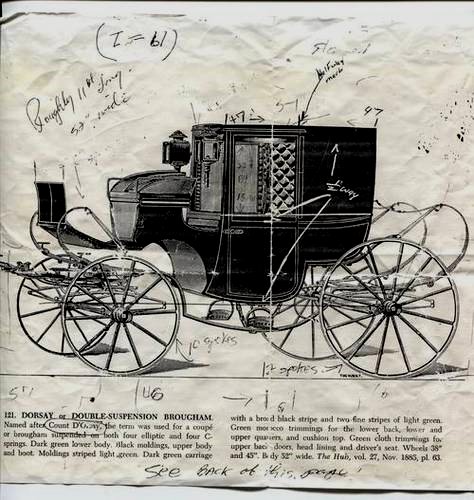 (I = 61)
Roughly 11 ft long
52" wide
Halfway
mark
47
5-
97
½ way
10 spokes
12 spokes
121. DORSAY or DOUBLE-SUSPENSION BROUGHAM.
Named after Count D'Orsay, the term was used for a coupé
or brougham suspended on both four elliptic and four C-
springs. Dark green lower body. Black moldings, upper body
and boot. Moldings striped light green. Dark green carriage
with a broad black stripe and two fine stripes of light green.
Green morocco trimmings for the lower back, lower and
upper quarters, and cushion top. Green cloth trimmings for
upper back, doors, head lining and driver's seat. Wheels 38"
and 45". Body 52" wide. The Hub, vol. 27, Nov. 1885, pl. 63.
See back of this page